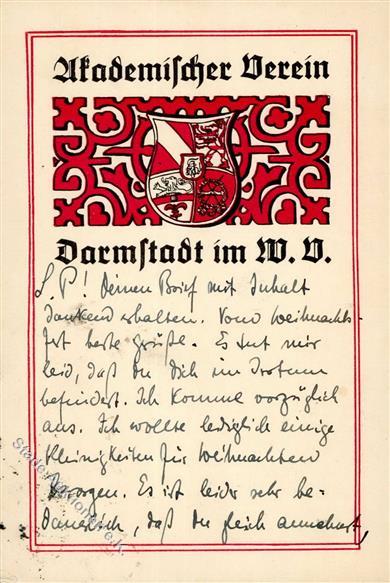 Akademischer Verein
Darmstadt im W. V.
L. P! Deinen Brief mit Inhalt
dankend erhalten. Vom Weihnachts-
fest beste Grüße. Es tut mir
leid, daß du dich im Irrtum
befindest. Ich komme vorzüglich
aus. Ich wollte lediglich einige
Kleinigkeiten für Weihnachten
besorgen. Es ist leider sehr be-
dauerlich, daß du gleich annehmst,